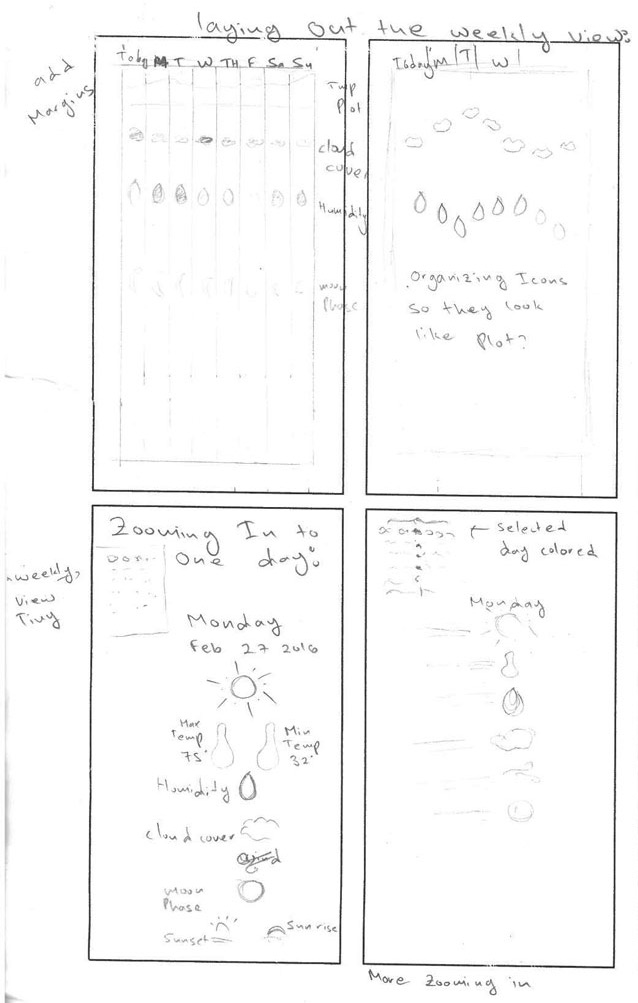 laying out the weekly view:
add
Margins
Today M T W TH F Sa Su
Tmp
Plot
cloud
cover
Humidity
moon
Phase
Today M T W
Organizing Icons
so they look
like Plot?
Zooming In to
One day:
weekly
view
Tiny
Monday
Feb 27 2016
Max
Temp
75°
Min
Temp
32°
Humidity
cloud cover
moon
Phase
Sunset
Sunrise
selected
day colored
Monday
More zooming in